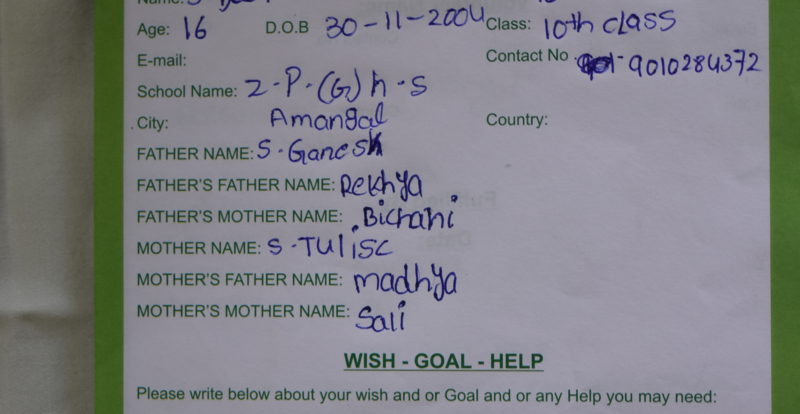 Name: S
Age: 16 D.O.B 30-11-2004 Class: 10th class
E-mail: Contact No 9010284372
School Name: Z.P.(G) h.s
City: Amangal Country:
FATHER NAME: S. Ganesh
FATHER'S FATHER NAME: Rekhya
FATHER'S MOTHER NAME: Bichani
MOTHER NAME: S.
MOTHER'S FATHER NAME: madhya
MOTHER'S MOTHER NAME: Sali
WISH - GOAL - HELP
Please write below about your wish and or Goal and or any Help you may need: